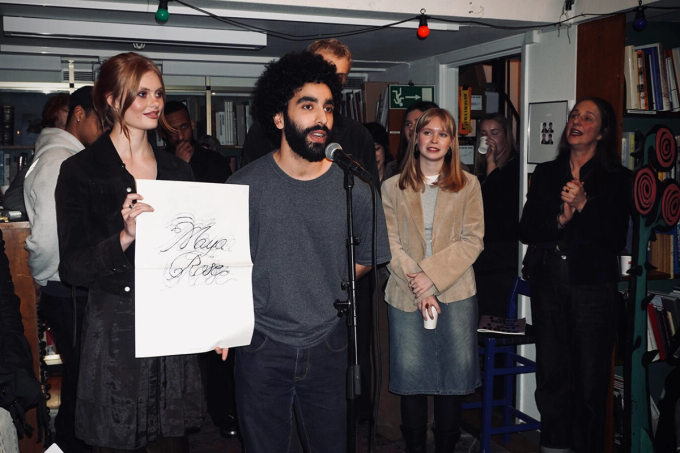 Maya
Rose